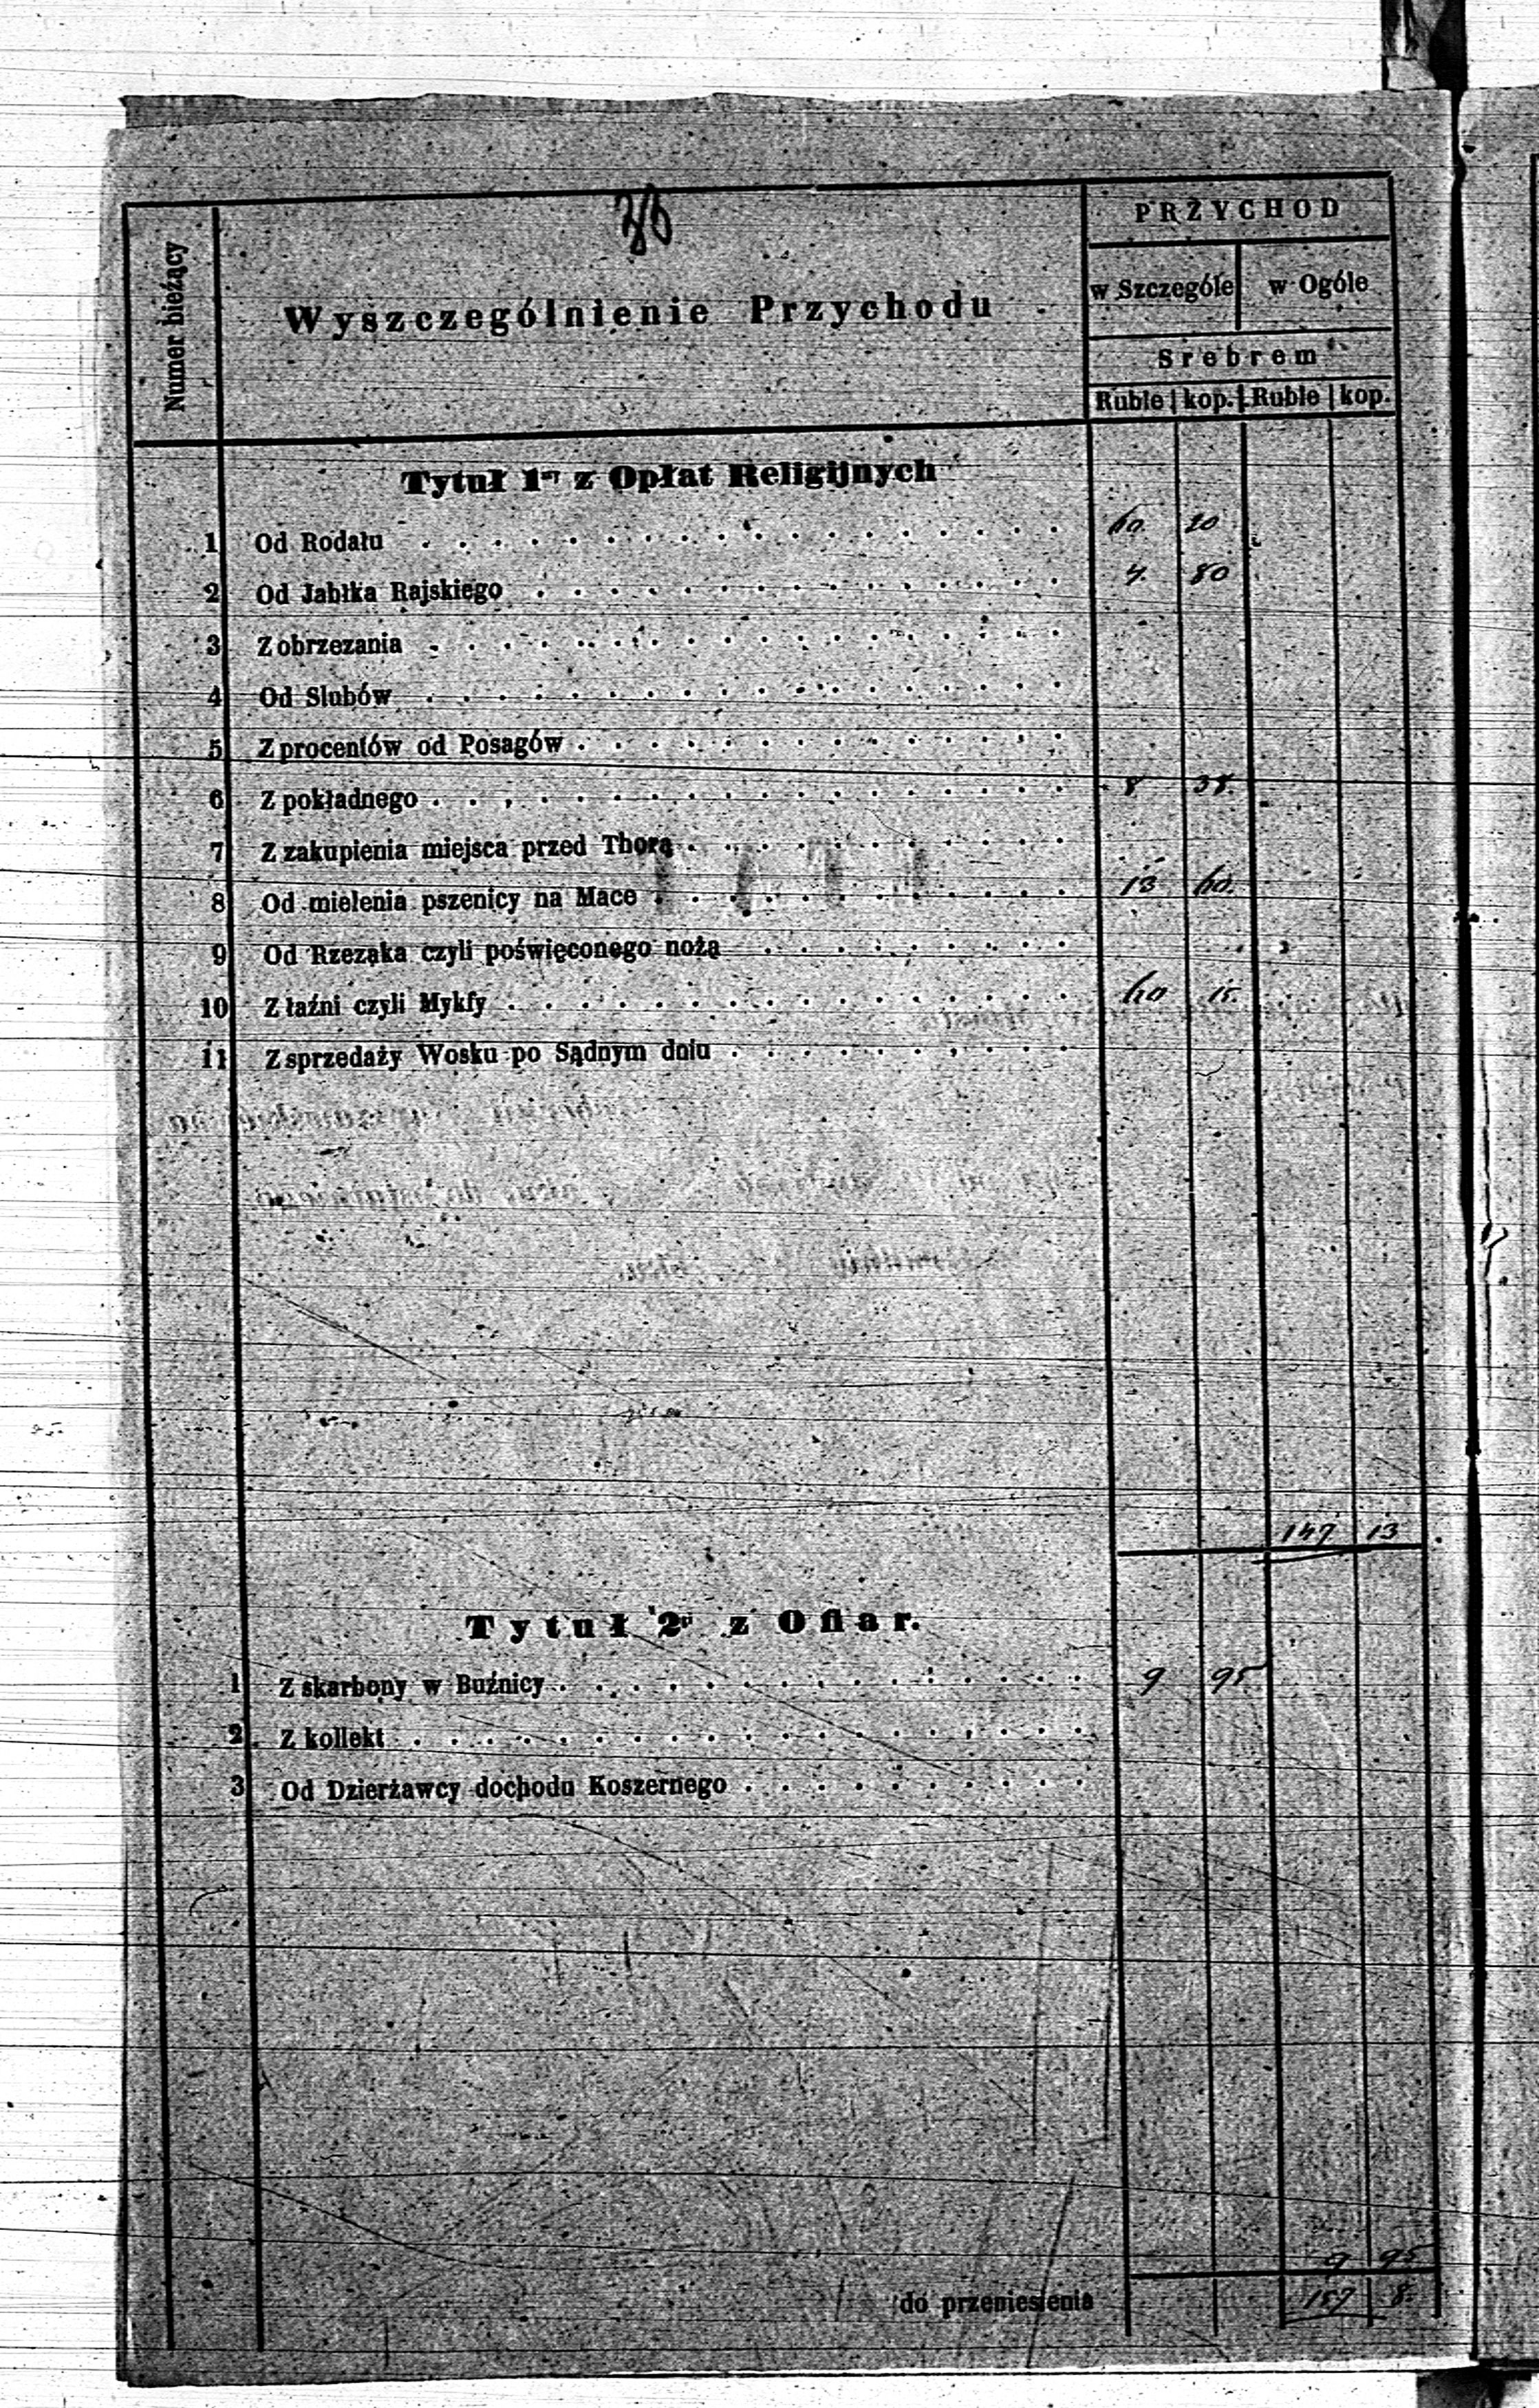 Numer bieżący
Wyszczególnienie Przychodu
PRZYCHOD
w Szczególe w Ogóle
Srebrem
Ruble kop. Ruble kop.
Tytuł 1ʷ z Opłat Religijnych
1 Od Rodału 60. 20
2 Od Jabłka Rajskiego 4. 80
3 Z obrzezania
4 Od Slubów
5 Z procentów od Posagów
6 Z pokładnego 8 38.
7 Z zakupienia miejsca przed Thorą
8 Od mielenia pszenicy na Mace 13 60.
9 Od Rzezaka czyli poświęconego noża
10 Z łaźni czyli Mykfy 60 15.
11 Z sprzedaży Wosku po Sądnym dniu
147 13
Tytuł 2ⁱ z Ofiar.
1 Z skarbony w Buźnicy 9 95
2 Z kollekt
3 Od Dzierżawcy dochodu Koszernego
9 95
do przeniesienia 157 8.